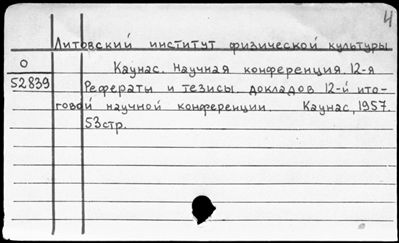 4
Литовский институт физической культуры
О Каунас. Научная конференция, 12-я
52839 Рефераты и тезисы докладов 12-й ито-
говой научной конференции. Каунас, 1957.
53стр.